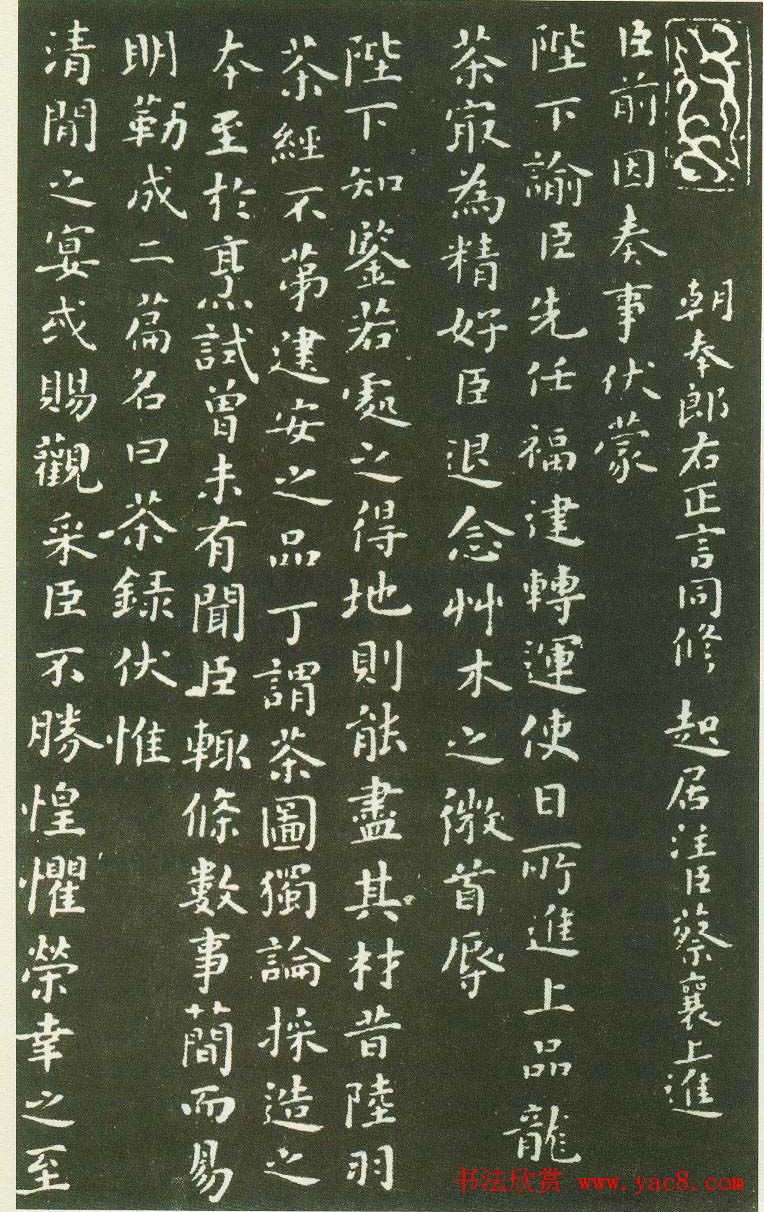 朝奉郎右正言同修起居注臣蔡襄上進
臣前因奏事伏蒙
陛下諭臣先任福建轉運使日所進上品龍
茶㝡為精好臣退念艸木之微首辱
陛下知鑒若處之得地則能盡其材昔陸羽
茶經不苐建安之品丁謂茶圖獨論採造之
夲至於烹試曾未有聞臣輙條數事簡而易
明勒成二篇名曰茶録伏惟
清閒之宴或賜觀采臣不勝惶懼榮幸之至
书法欣赏 www.yac8.com